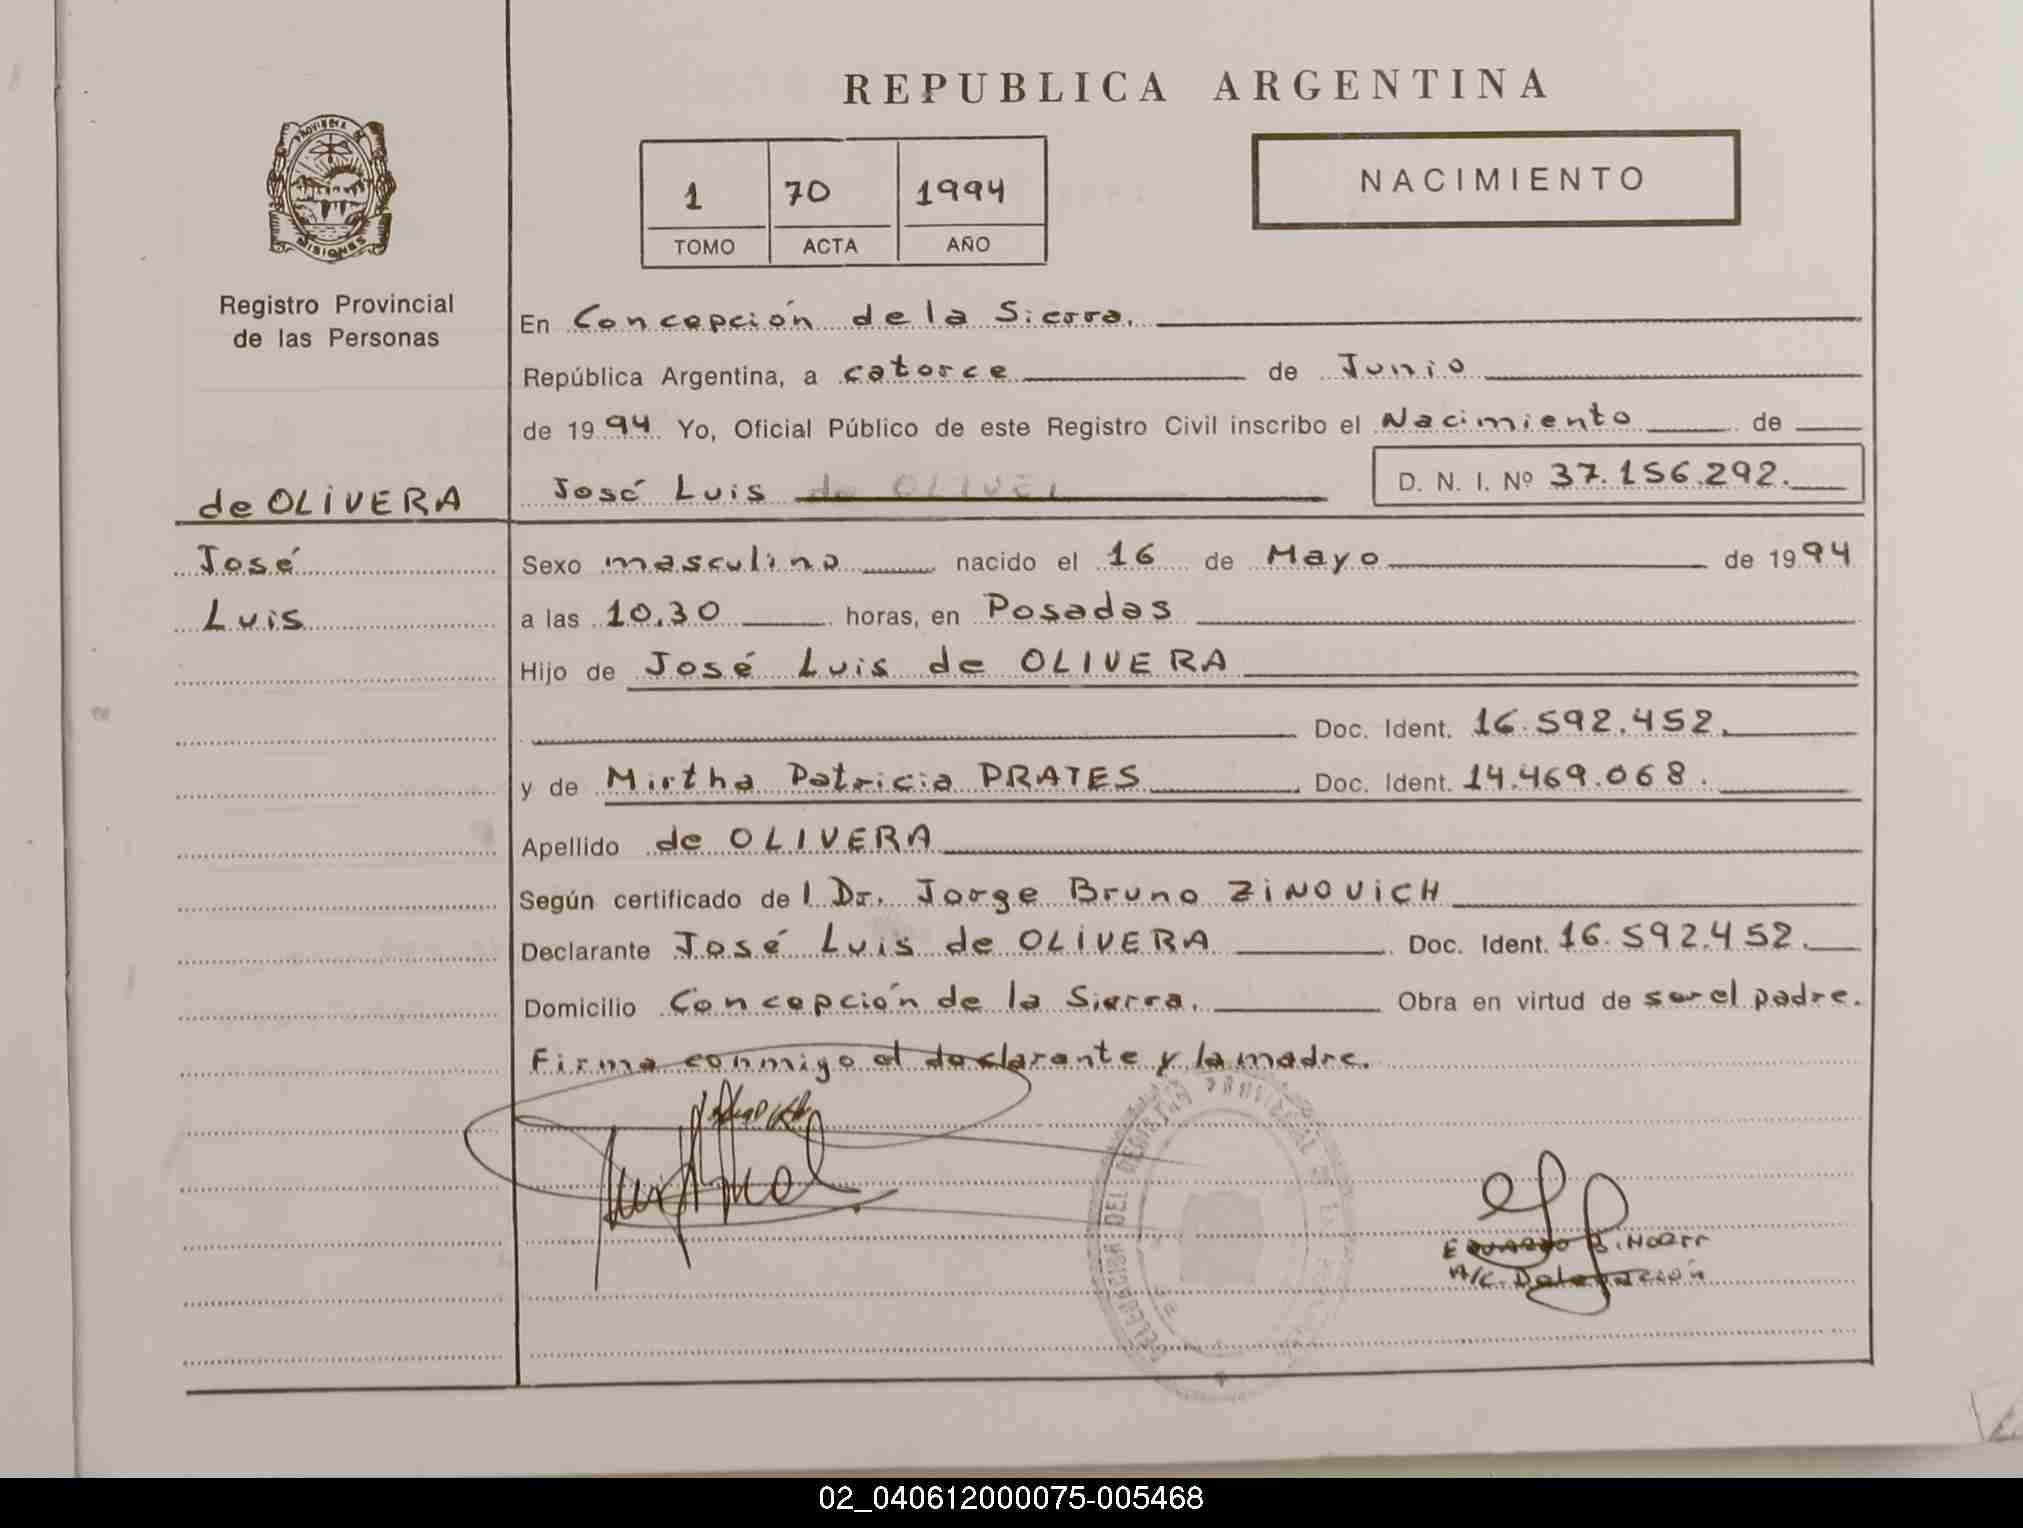 REPUBLICA ARGENTINA
PROVINCIA DE
MISIONES
Registro Provincial
de las Personas
1 70 1994
TOMO ACTA AÑO
NACIMIENTO
En Concepción de la Sierra.
República Argentina, a catorce de Junio
de 1994 Yo, Oficial Público de este Registro Civil inscribo el Nacimiento de
José Luis D. N. I. Nº 37.156.292.
de OLIVERA
José
Luis
Sexo masculino nacido el 16 de Mayo de 1994
a las 10,30 horas, en Posadas
Hijo de José Luis de OLIVERA
Doc. Ident. 16.592.452.
y de Mirtha Patricia PRATES Doc. Ident. 14.469.068.
Apellido de OLIVERA
Según certificado del Dr. Jorge Bruno ZINOVICH
Declarante José Luis de OLIVERA Doc. Ident. 16.592.452.
Domicilio Concepción de la Sierra. Obra en virtud de ser el padre.
Firma conmigo el declarante y la madre.
DELEGACION DEL REGISTRO PROVINCIAL DE
EDUARDO
A/C. Delegación
02_040612000075-005468